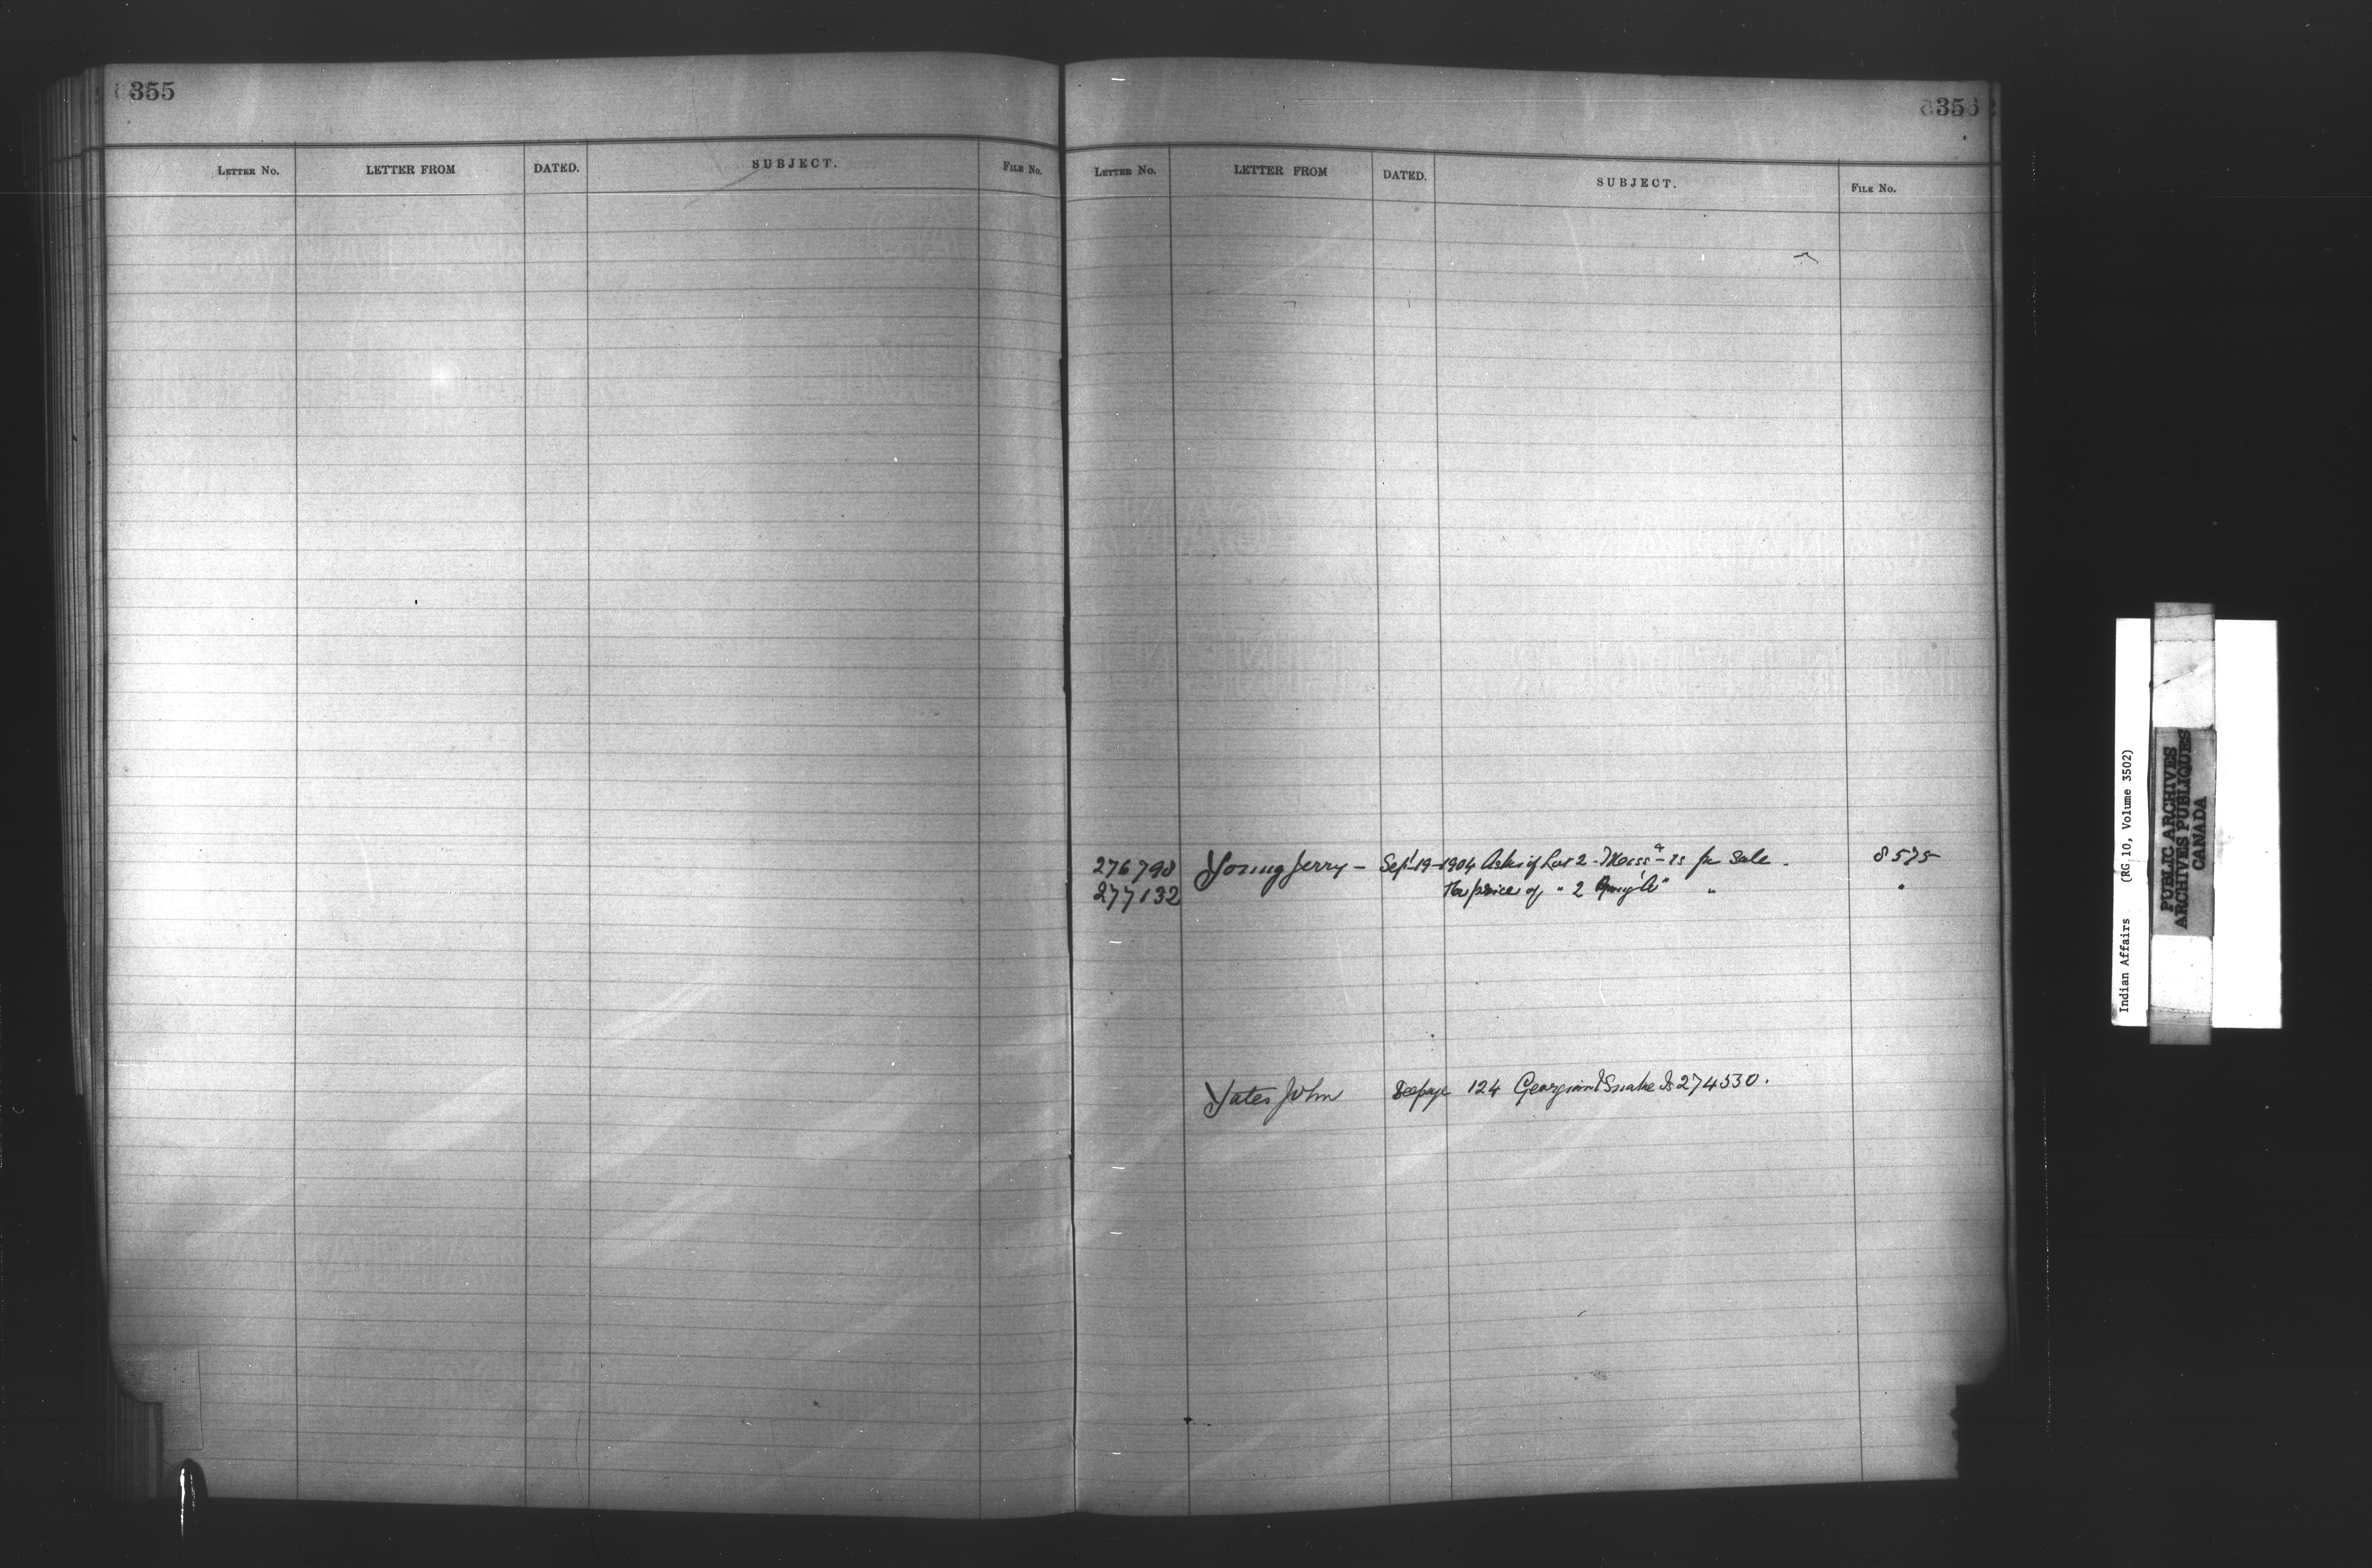 355
LETTER NO. LETTER FROM DATED. SUBJECT. FILE NO.
356
LETTER NO. LETTER FROM DATED. SUBJECT. FILE NO.
276798 Young Jerry – Sept 19–1904 Asks if Lot 2 - is for Sale. 8575
277132 The price of " 2 " "
Yates John See page 124 Georgina & Snake Is 274530.
Indian Affairs (RG 10, Volume 3502)
PUBLIC ARCHIVES
ARCHIVES PUBLIQUES
CANADA